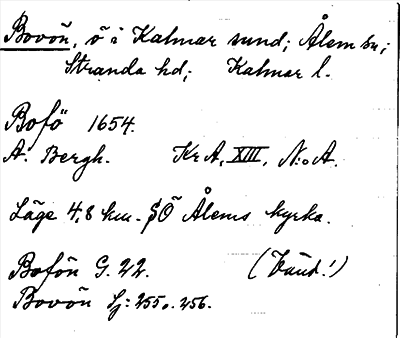 Bovön, ö i Kalmar sund; Ålem sn;
Stranda hd; Kalmar l.
Bofö 1654.
A. Bergh. Kr A, XIII, N:o A.
Läge 4,8 km. SÖ Ålems kyrka.
Bofön G. 22. (Vänd!)
Bovön Lj: 255 o. 256.